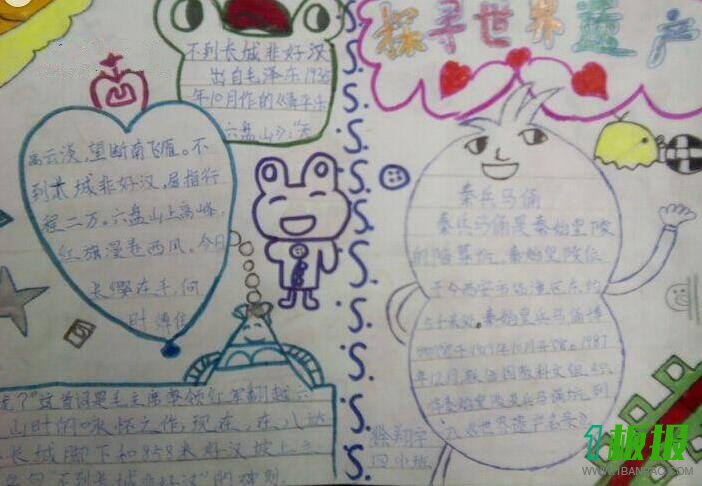 探寻世界遗产
不到长城非好汉
出自毛泽东1935
年10月作的《清平乐
六盘山》:天
高云淡,望断南飞雁。不
到长城非好汉,屈指行
程二万。六盘山上高峰,
红旗漫卷西风。今日
长缨在手,何
时缚住
龙?"这首词是毛主席率领红军翻越六
山时的咏怀之作,现在,在八达
长城脚下和858米好汉坡上立
"不到长城非好汉"的碑刻
秦兵马俑
秦兵马俑是秦始皇陵
的陪葬坑,秦始皇陵位
于今西安市临潼区东约
5千米处。秦始皇兵马俑博
物馆于1979年10月开馆。1987
年12月,联合国教科文组织
将秦始皇陵及兵马俑坑列
入《世界遗产名录》
四
班
板报
WWW.1BANBAO.COM